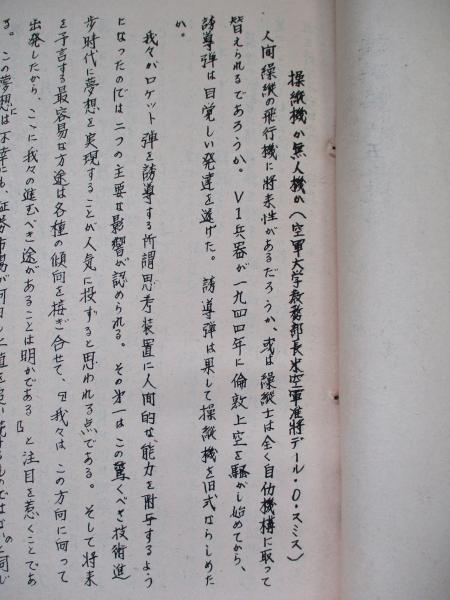 操縦機か無人機か(空軍大学教務部長米空軍准将デール・O・スミス)
人間操縦の飛行機に将来性があるだろうか、或は操縦士は全く自仂機構に取って
替えられるであろうか。V1兵器が一九四四年に倫敦上空を騒がし始めてから、
誘導弾は目覚しい発達を遂げた。誘導弾は果して操縦機を旧式ならしめた
か。
我々がロケット弾を誘導する所謂思考装置に人間的な能力を附与するよう
になったのには二つの主要な影響が認められる。その第一はこの驚くべき技術進
歩時代に夢想を実現することが人気に投ずると思われる点である。そして将来
を予言する最容易な方途は各種の傾向を接ぎ合せて、「我々は、この方向に向って
出発したから、ここに我々の進むべき途があることは明かである」と注目を惹くことであ
る。この夢想は不幸にも、証券市場が何日も値を追い続けるものではないのと同じ